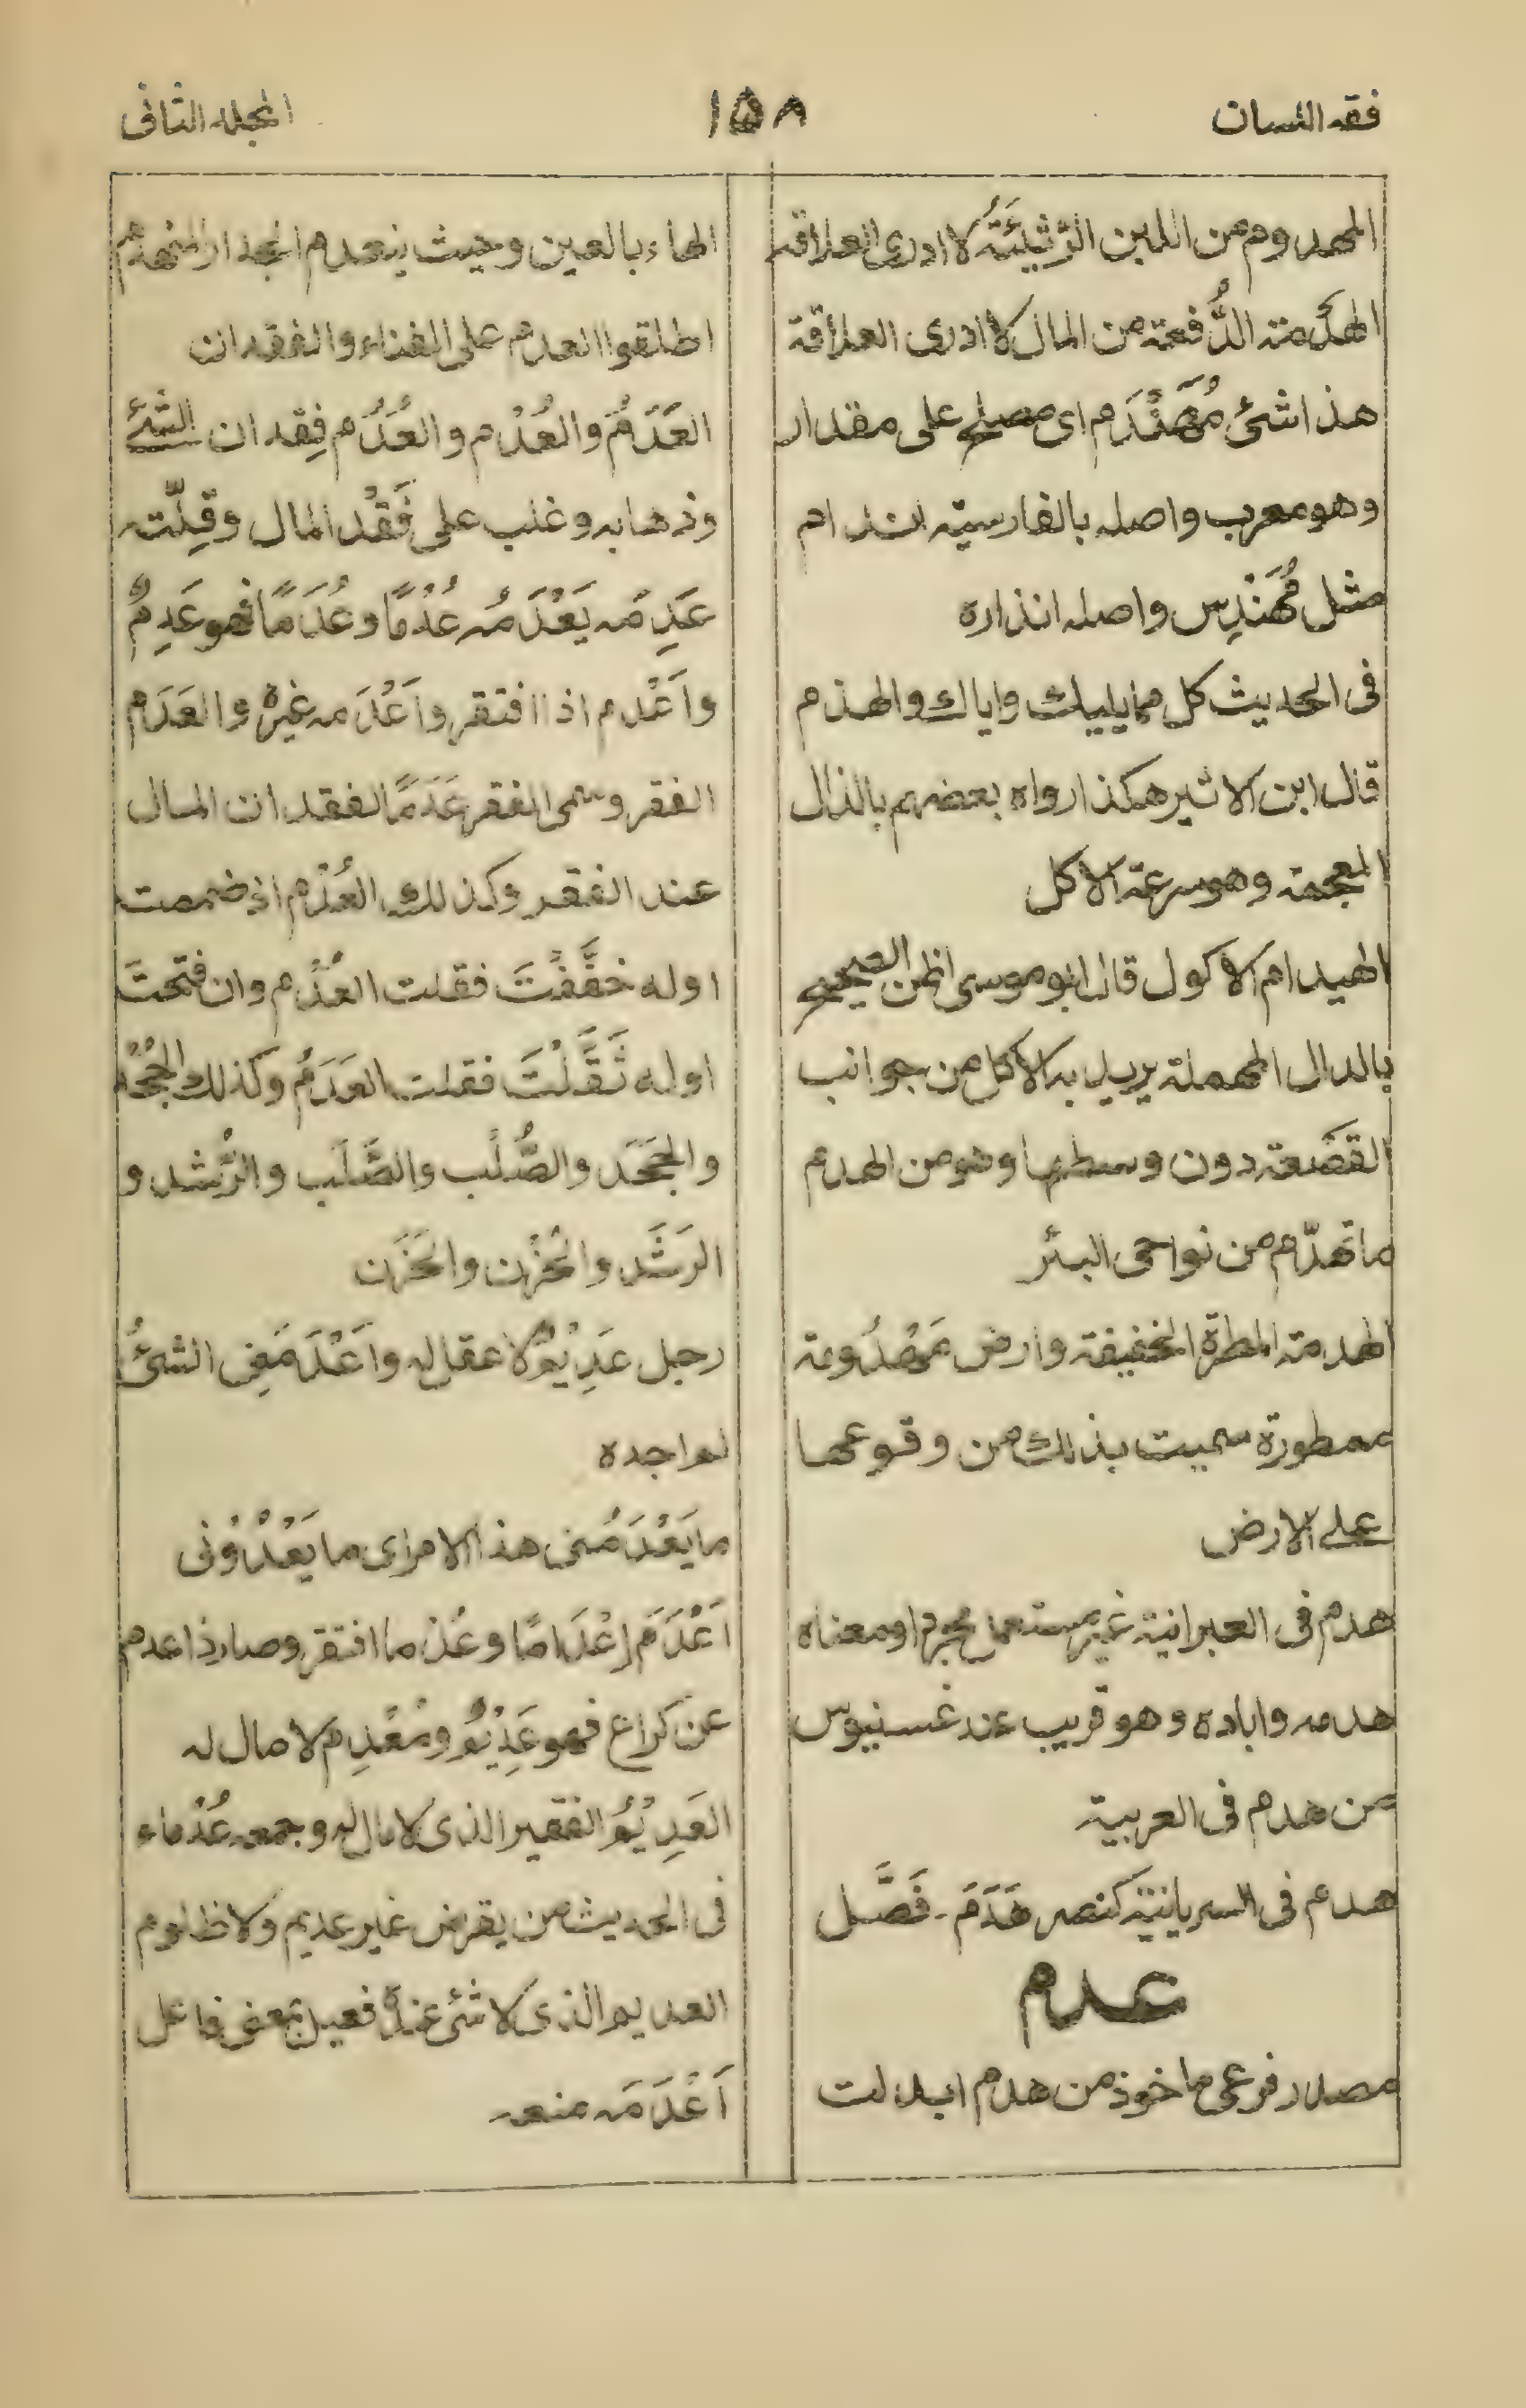 فقه اللسان
١٥٨
المجلد الثانى
المهدوم من اللبن الرَّثِيْئَةُ لا ادرى العلاقة
الهَدَمة الدُّفعة من المال لا ادرى العلاقة
هذا شئ مُهَنْدَم اى مصلح على مقدار
وهو معرب واصله بالفارسيّة اندام
مثل مُهَنْدِس واصله اندازه
فى الحديث كل مما يليك واياك والهذم
قال ابن الاثير هكذا رواه بعضهم بالذال
المعجمة وهو سرعة الاكل
الهيدام الاكول قال ابو موسى اظن الصحيح
بالدال المهملة يريد به الاكل من جوانب
القَصْعة دون وسطها وهو من الهدم
ما تهدّم من نواحى البئر
الهدمة المطرة الخفيفة وارض مَهْدُومة
ممطورة سميت بذلك من وقوعها
على الارض
هدم فى العبرانية غير مستعمل مجردا ومعناه
هدمه واباده وهو قريب عند غسنيوس
من هدم فى العربية
هدم فى السريانية كنصر هَدَمَ ـ فَصَّل
عدم
مصدر فرعى ماخوذ من هدم ابدلت
الهاء بالعين وحيث ينعدم الجدار المنهدم
اطلقوا العدم على الفناء والفقدان
العَدَمُ والعُدْم والعُدُم فِقدان الشئ
وذهابه وغلب على فَقْد المال وقِلّته
عَدِمَه يَعْدَمُه عُدْمًا وعُدَمًا فهو عَدِمٌ
واَعْدم اذا افتقر واَعْدَمه غيره والعَدَم
الفقر وسمى الفقر عَدَمًا لفقدان المال
عند الفقر وكذلك العُدْم اذ ضممت
اوله خَفَّفْتَ فقلت العُدْم وان فتحتَ
اوله ثَقَّلْتَ فقلت العَدَمُ وكذلك الجُحْد
والجَحَد والصُّلْب والصَّلَب والرُّشد و
الرَشَد والحُزْن والحَزَن
رجل عَدِيْمٌ لا عقل له واَعْدَمَنِى الشئُ
لم اجده
ما يَعْدَمُنى هذا الامر اى ما يَعْدُوْنى
اَعْدَمَ اِعْدَامًا وعُدْما افتقر وصار ذا عدم
عن كراع فهو عَدِيْمٌ ومُعْدِم لا مال له
العَدِيْمُ الفقير الذى لا مال له وجمعه عُدْماء
فى الحديث من يقرض غير عديم ولا ظلوم
العديم الذى لا شئ عنده فعيل بمعنى فاعل
اَعْدَمَه منعه